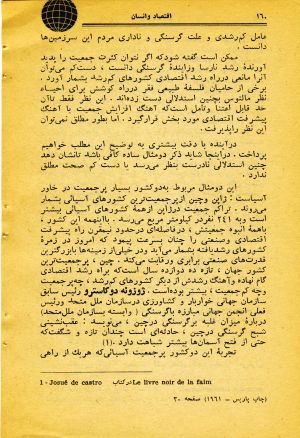 ۱۶۰ اقتصاد وانسان
عامل کم‌رشدی و علت گرسنگی و ناداری مردم این سرزمین‌ها
دانست .
ممکن است گفته شودکه اگر نتوان کثرت جمعیت را پدید
آورندهٔ رشد نارسا وزایندهٔ گرسنگی دانست ، دست‌کم می‌توان
آنرا مانعی درراه رشد اقتصادی کشورهای کم‌رشد بشمار آورد .
برخی از حامیان فلسفهٔ طبیعی فقر درراه کوشش برای احیاء
نظر مالتوس بچنین استدلالی دست زده‌اند . این نظر فقط تاآن
حد قابل اعتنا وتأمل‌است‌که آهنگ افزایش جمعیت با آهنگ
پیشرفت اقتصادی مورد بخش قرارگیرد . اما بطور مطلق نمی‌توان
این نظر راپذیرفت .
درآینده با دقت بیشتری به توضیح این مطلب خواهیم
پرداخت . دراینجا شاید ذکر دومثال ساده کافی باشد تانشان دهد
چنین استدلالی نادرست بنظر می‌رسد یا دست کم صحت مطلق
ندارد .
این دومثال مربوط به‌دوکشور بسیار پرجمعیت در خاور
آسیاست : ژاپن وچین ازپرجمعیت‌ترین کشورهای آسیائی بشمار
می‌روند . تراکم جمعیت درژاپن ازهمهٔ کشورهای آسیائی بیشتر
است وبه ۲۴۱ نفردر کیلومتر مربع می‌رسد . بااینهمه این کشور ،
باهمهٔ انبوه جمعیتش ، درفاصله‌ای‌درحدود نیمقرن راه پیشرفت
اقتصادی وصنعتی را چنان بسرعت پیمود که امروز در زمرهٔ
کشورهای رشدیافته بشمار می‌آید ودر خیلی‌از زمینه‌ها بابزرگترین
قدرت‌های صنعتی برابری ورقابت می‌کند . چین ، پرجمعیت‌ترین
کشور جهان ، تازه ده دوازده سال است‌که براه رشد اقتصادی
گام نهاده وآهنگ رشدش از دیگر کشورهای کم‌رشد ، چه‌پرجمعیت
وچه کم‌جمعیت ، بیشتر بوده‌است . ژوزوئه دوکاسترو رئیس سابق
سازمان جهانی خواربار و کشاورزی درسازمان ملل متحد ورئیس
فعلی انجمن جهانی مبارزه باگرسنگی ( وابسته بسازمان ملل‌متحد)
دربارهٔ میزان غلبه برگرسنگی درچین ، می‌نویسد : عقب‌نشینی
شبح گرسنگی درچین ، حادثه‌ای است چندان تازه و شگفت‌که
حتی از فتح آسمان‌ها بیشتر شباهت دارد . (۱)
تجربهٔ این دوکشور پرجمعیت آسیائی‌که هریک از راهی
1 - Josué de castro درکتاب Le livre noir de la faim
(چاپ پاریس - ۱۹۶۱) صفحه ۳۰